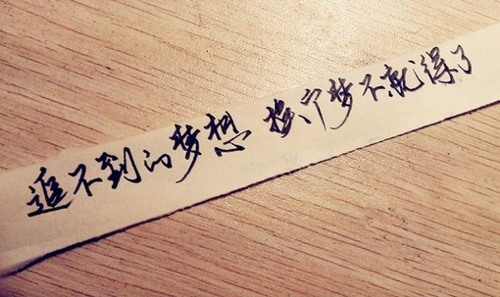 追不到的梦想 换个梦不就得了